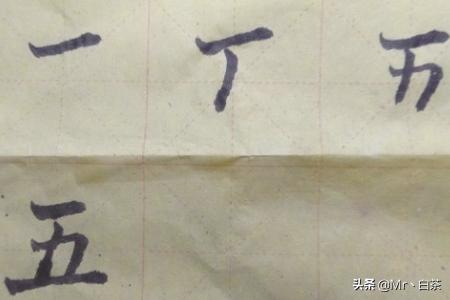 一 丁 五
头条 @Mr丶白茶